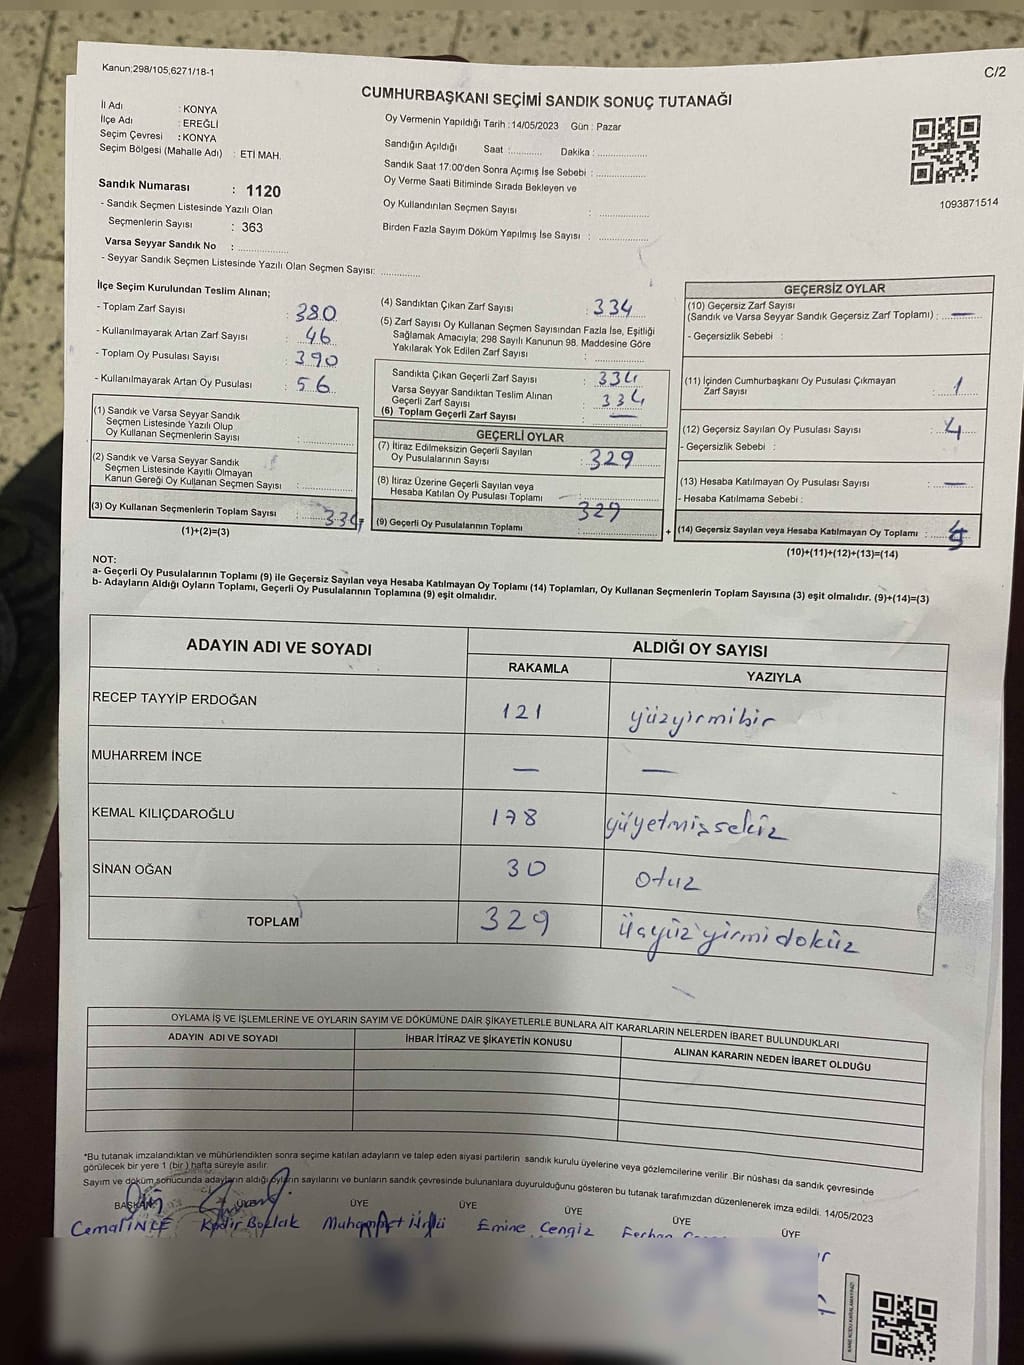 Kanun;298/105,6271/18-1
C/2
CUMHURBAŞKANI SEÇİMİ SANDIK SONUÇ TUTANAĞI
İl Adı : KONYA
İlçe Adı : EREĞLİ
Seçim Çevresi : KONYA
Seçim Bölgesi (Mahalle Adı) : ETİ MAH.
Sandık Numarası : 1120
- Sandık Seçmen Listesinde Yazılı Olan
Seçmenlerin Sayısı : 363
Varsa Seyyar Sandık No : ..............
- Seyyar Sandık Seçmen Listesinde Yazılı Olan Seçmen Sayısı: ............
Oy Vermenin Yapıldığı Tarih : 14/05/2023 Gün : Pazar
Sandığın Açıldığı Saat :.......... Dakika : ...............
Sandık Saat 17:00'den Sonra Açımış İse Sebebi : ...............
Oy Verme Saati Bitiminde Sırada Bekleyen ve
Oy Kullandırılan Seçmen Sayısı : ...............
Birden Fazla Sayım Döküm Yapılmış İse Sayısı : ...............
1093871514
İlçe Seçim Kurulundan Teslim Alınan;
- Toplam Zarf Sayısı : 380
- Kullanılmayarak Artan Zarf Sayısı : 46
- Toplam Oy Pusulası Sayısı : 390
- Kullanılmayarak Artan Oy Pusulası : 56
(1) Sandık ve Varsa Seyyar Sandık
Seçmen Listesinde Yazılı Olup
Oy Kullanan Seçmenlerin Sayısı : ...............
(2) Sandık ve Varsa Seyyar Sandık
Seçmen Listesinde Kayıtlı Olmayan
Kanun Gereği Oy Kullanan Seçmen Sayısı : ...............
(3) Oy Kullanan Seçmenlerin Toplam Sayısı : 334
(1)+(2)=(3)
(4) Sandıktan Çıkan Zarf Sayısı : 334
(5) Zarf Sayısı Oy Kullanan Seçmen Sayısından Fazla İse, Eşitliği
Sağlamak Amacıyla; 298 Sayılı Kanunun 98. Maddesine Göre
Yakılarak Yok Edilen Zarf Sayısı : ...............
Sandıkta Çıkan Geçerli Zarf Sayısı : 334
Varsa Seyyar Sandıktan Teslim Alınan
Geçerli Zarf Sayısı : 334
(6) Toplam Geçerli Zarf Sayısı : —
GEÇERLİ OYLAR
(7) İtiraz Edilmeksizin Geçerli Sayılan
Oy Pusulalarının Sayısı : 329
(8) İtiraz Üzerine Geçerli Sayılan veya
Hesaba Katılan Oy Pusulası Toplamı : ...............
(9) Geçerli Oy Pusulalarının Toplamı : 329
+
GEÇERSİZ OYLAR
(10) Geçersiz Zarf Sayısı
(Sandık ve Varsa Seyyar Sandık Geçersiz Zarf Toplamı) : —
- Geçersizlik Sebebi :
(11) İçinden Cumhurbaşkanı Oy Pusulası Çıkmayan
Zarf Sayısı : 1
(12) Geçersiz Sayılan Oy Pusulası Sayısı : 4
- Geçersizlik Sebebi :
(13) Hesaba Katılmayan Oy Pusulası Sayısı : —
- Hesaba Katılmama Sebebi :
(14) Geçersiz Sayılan veya Hesaba Katılmayan Oy Toplamı : 5
(10)+(11)+(12)+(13)=(14)
NOT:
a- Geçerli Oy Pusulalarının Toplamı (9) ile Geçersiz Sayılan veya Hesaba Katılmayan Oy Toplamı (14) Toplamları, Oy Kullanan Seçmenlerin Toplam Sayısına (3) eşit olmalıdır. (9)+(14)=(3)
b- Adayların Aldığı Oyların Toplamı, Geçerli Oy Pusulalarının Toplamına (9) eşit olmalıdır.
ADAYIN ADI VE SOYADI ALDIĞI OY SAYISI
RAKAMLA YAZIYLA
RECEP TAYYİP ERDOĞAN 121 yüzyirmibir
MUHARREM İNCE — —
KEMAL KILIÇDAROĞLU 178 yüyetmişsekiz
SİNAN OĞAN 30 otuz
TOPLAM 329 üçyüzyirmidokuz
OYLAMA İŞ VE İŞLEMLERİNE VE OYLARIN SAYIM VE DÖKÜMÜNE DAİR ŞİKAYETLERLE BUNLARA AİT KARARLARIN NELERDEN İBARET BULUNDUKLARI
ADAYIN ADI VE SOYADI İHBAR İTİRAZ VE ŞİKAYETİN KONUSU ALINAN KARARIN NEDEN İBARET OLDUĞU
*Bu tutanak imzalandıktan ve mühürlendikten sonra seçime katılan adayların ve talep eden siyasi partilerin sandık kurulu üyelerine veya gözlemcilerine verilir .Bir nüshası da sandık çevresinde
görülecek bir yere 1 (bir ) hafta süreyle asılır.
Sayım ve döküm sonucunda adayların aldığı oyların sayılarını ve bunların sandık çevresinde bulunanlara duyurulduğunu gösteren bu tutanak tarafımızdan düzenlenerek imza edildi. 14/05/2023
BAŞKAN ÜYE ÜYE ÜYE ÜYE ÜYE
Cemal İNCE Kadir Bollak Muhammet Ünlü Emine Cengiz Ferhan